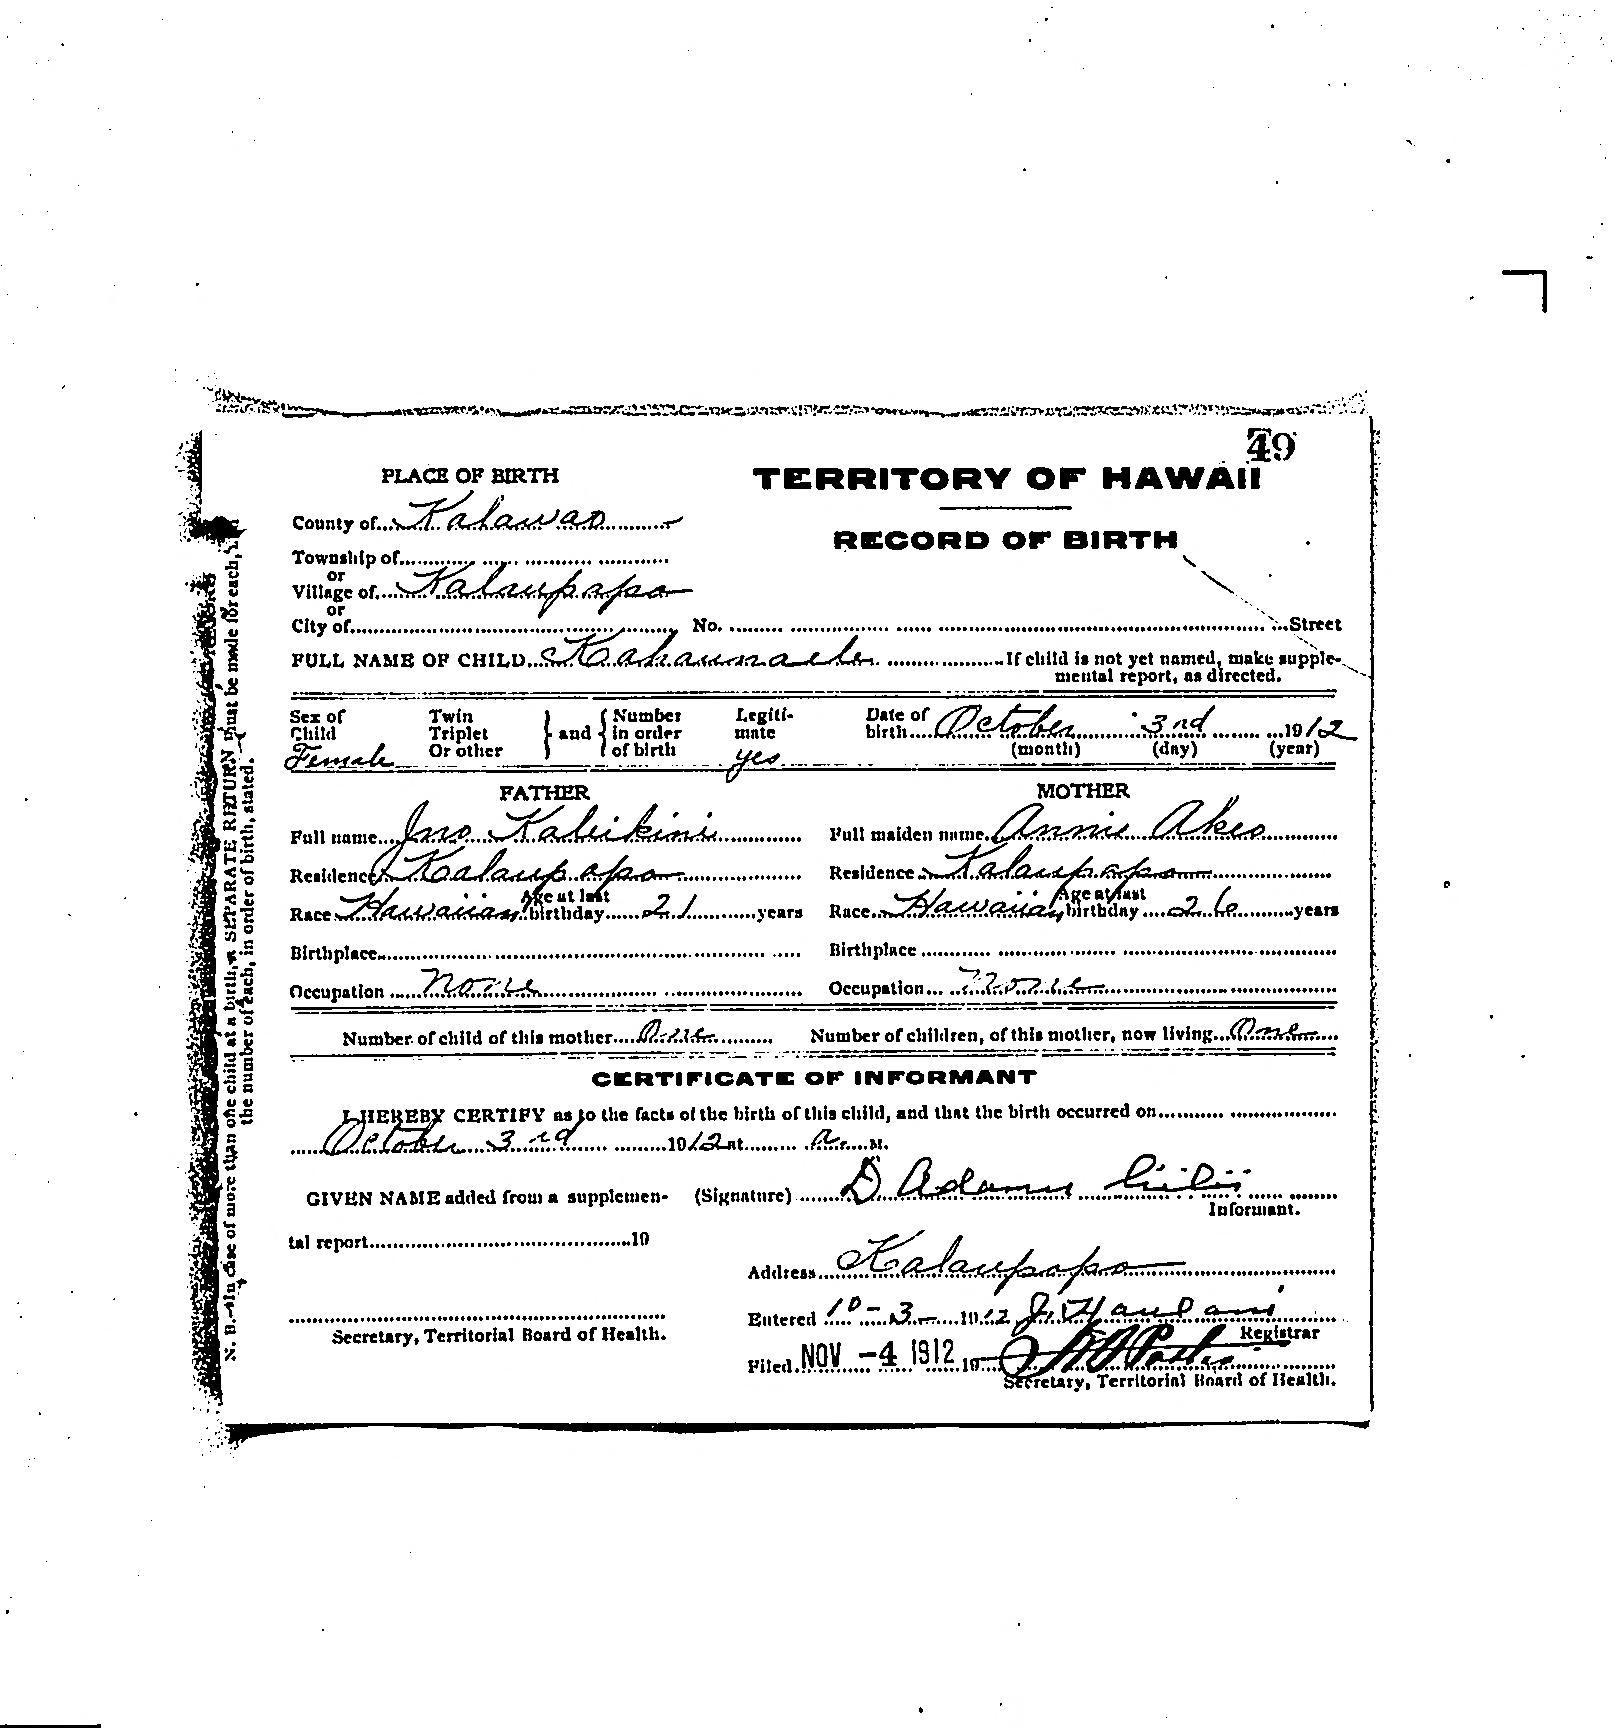 49
PLACE OF BIRTH
TERRITORY OF HAWAII
County of Kalawao
RECORD OF BIRTH
Township of
or
Village of Kalaupapa
or
City of No. Street
FULL NAME OF CHILD Kahaunaele If child is not yet named, make supple-
mental report, as directed.
Sex of Child Female
Twin Triplet Or other
and Number in order of birth
Legiti-mate yes
Date of birth October 3rd 1912
(month) (day) (year)
FATHER
MOTHER
Full name Jno Kaleikini Full maiden name Annie Akeo
Residence Kalaupapa Residence Kalaupapa
Race Hawaiian Age at last birthday 21 years Race Hawaiian Age at last birthday 26 years
Birthplace Birthplace
Occupation None Occupation None
Number of child of this mother One Number of children, of this mother, now living One
CERTIFICATE OF INFORMANT
I HEREBY CERTIFY as to the facts of the birth of this child, and that the birth occurred on
October 3rd 1912 at a. M.
GIVEN NAME added from a supplemen- (Signature) D Adams
Informant.
tal report 19
Address Kalaupapa
Entered 10-3- 1912 J. Haulani
Secretary, Territorial Board of Health. Registrar
Filed NOV -4 1912 19
Secretary, Territorial Board of Health.
N. B.—In case of more than one child at a birth, a SEPARATE RETURN must be made for each,
the number of each, in order of birth, stated.